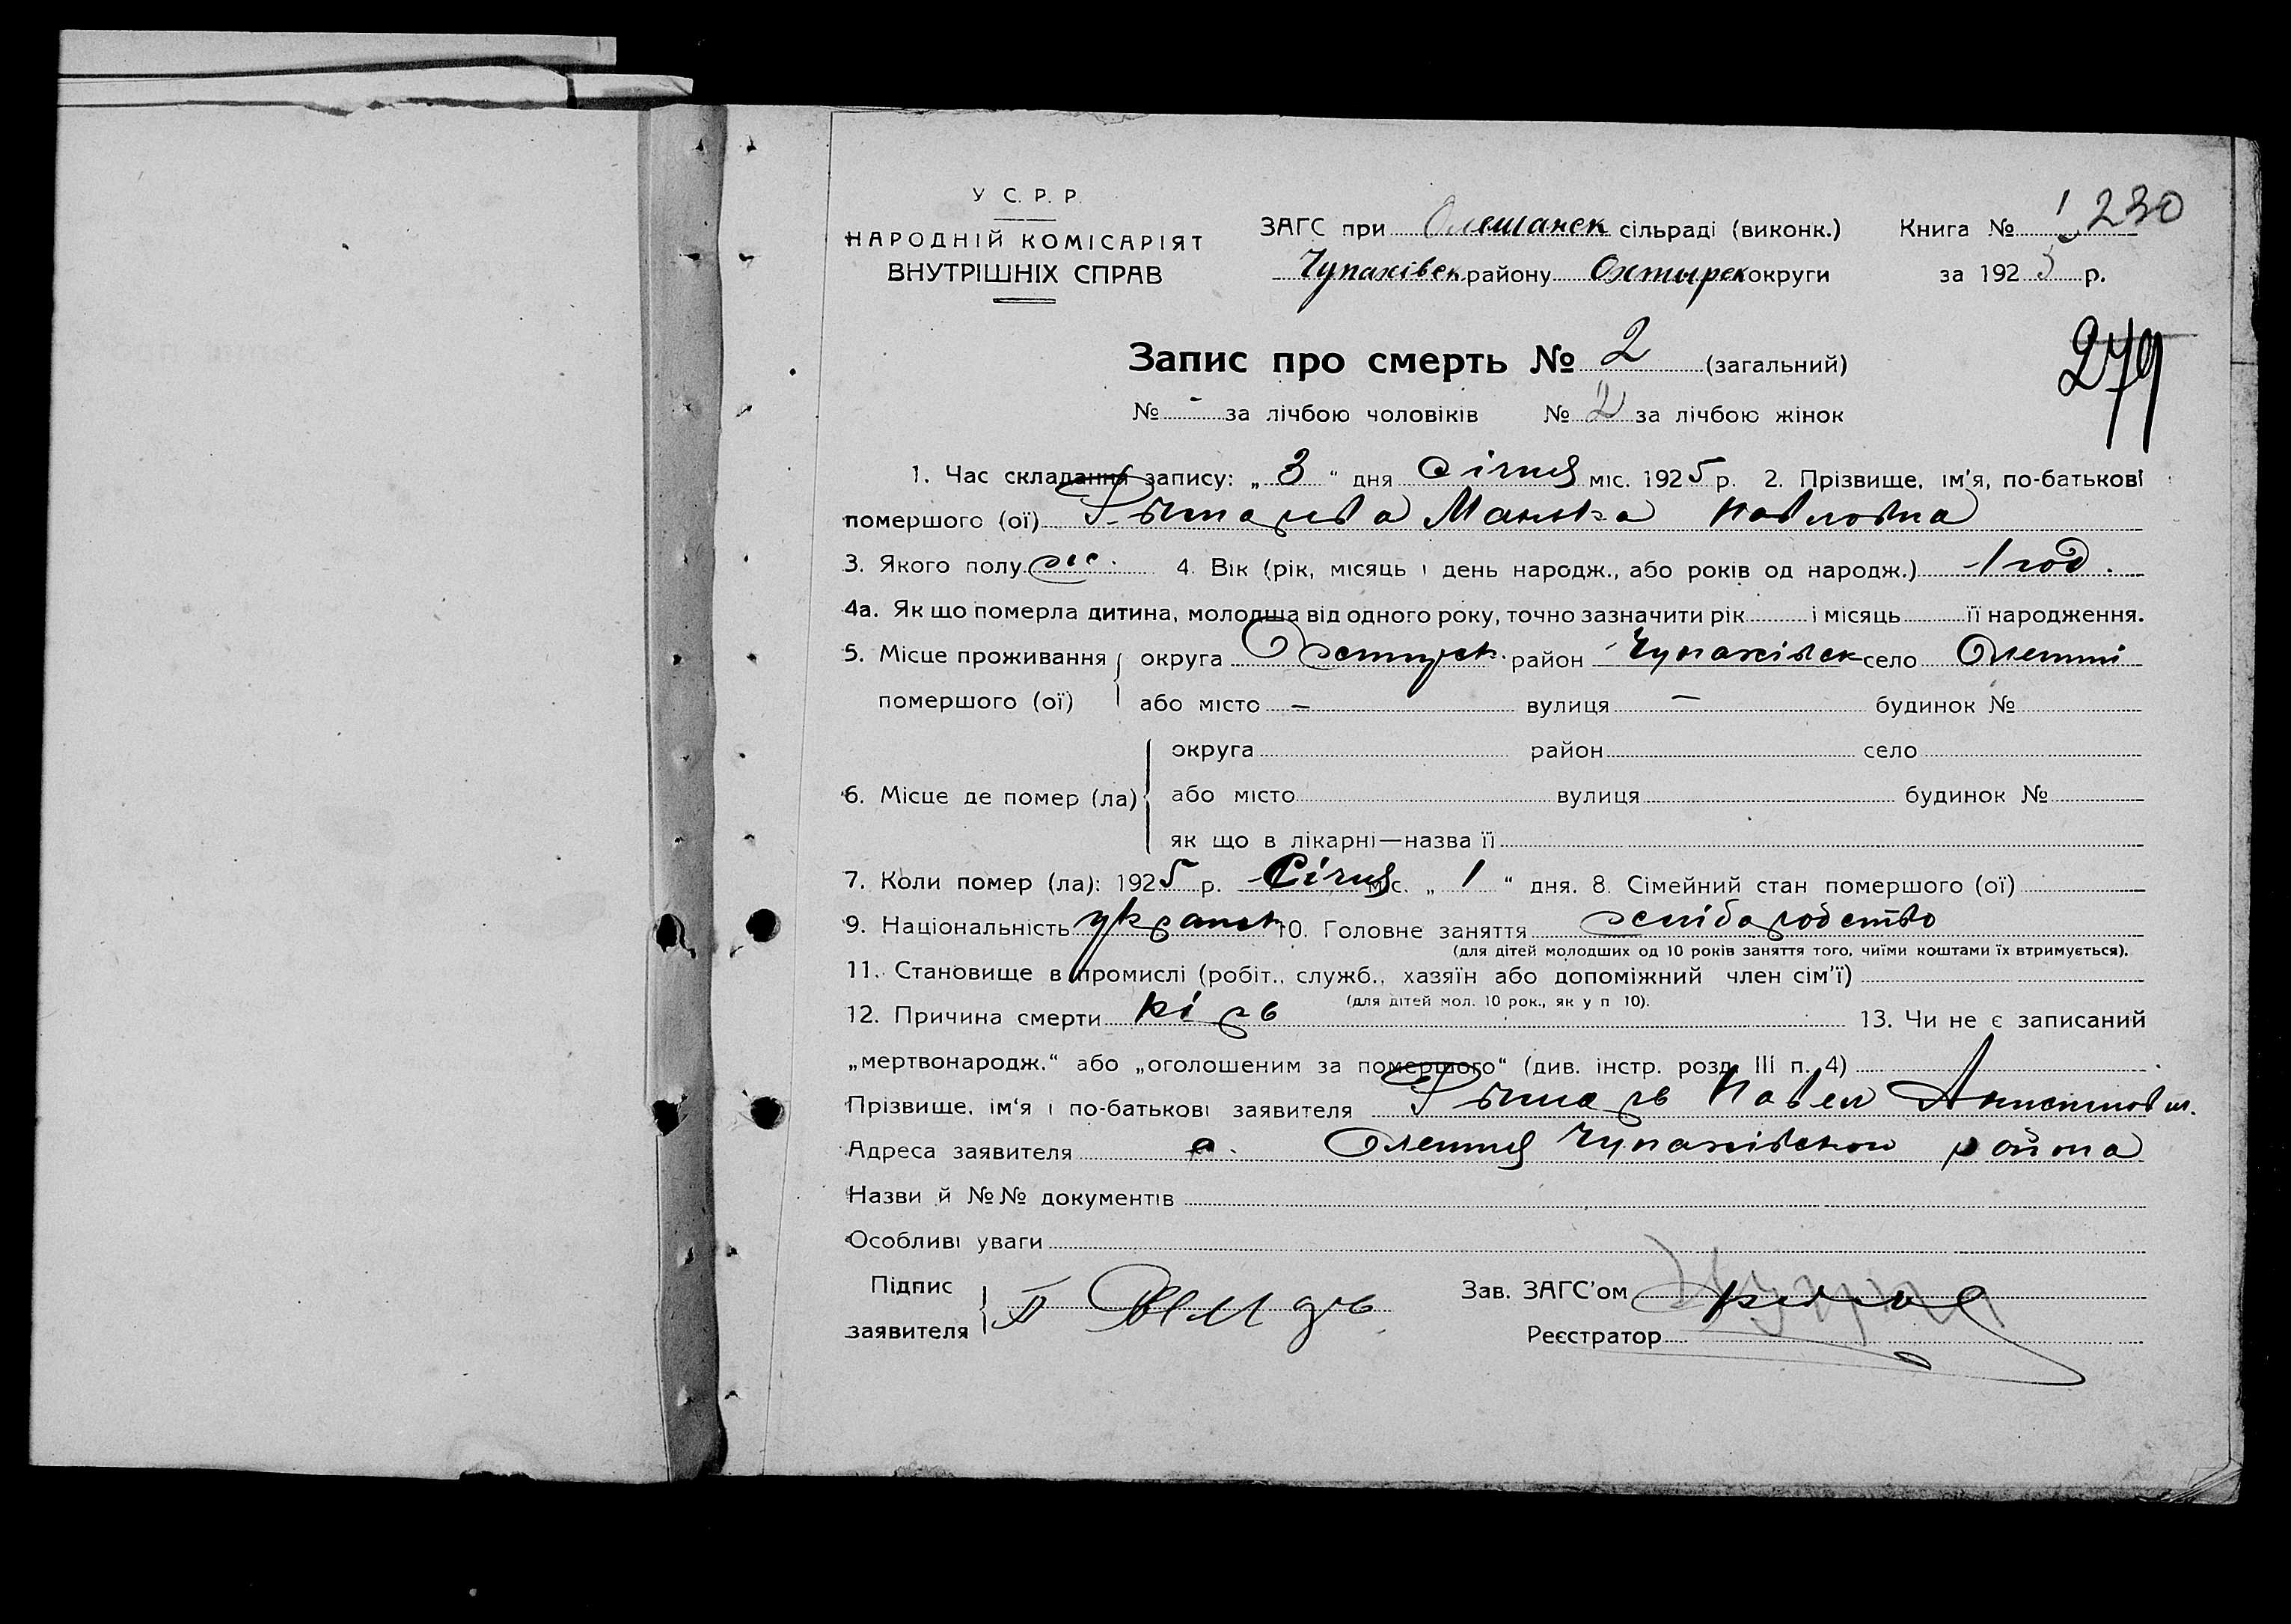 У С. Р. Р.
НАРОДНІЙ КОМІСАРІЯТ
ВНУТРІШНІХ СПРАВ
ЗАГС при Олешанск сільраді (виконк.) Книга № 1 230
Чупахівск району Охтырск округи за 1925 р.
279
Запис про смерть № 2 (загальний)
№ - за лічбою чоловіків № 2 за лічбою жінок
1. Час складання запису: „ 3 “ дня Січня міс. 1925 р. 2. Прізвище, ім'я, по-батькові
помершого (ої) Манька Павловна
3. Якого полу жіс. 4. Вік (рік, місяць і день народж., або років од народж.) 1 год.
4а. Як що померла дитина, молодша від одного року, точно зазначити рік і місяць її народження.
5. Місце проживання округа район Чупахівск село Олешні
помершого (ої) або місто – вулиця – будинок №
округа район село
6. Місце де помер (ла) або місто вулиця будинок №
як що в лікарні—назва її
7. Коли помер (ла): 1925 р. Січня міс. „ 1 “ дня. 8. Сімейний стан помершого (ої)
9. Національність 10. Головне заняття хліборобство
(для дітей молодших од 10 років заняття того, чиїми коштами їх втримується).
11. Становище в промислі (робіт., служб., хазяїн або допоміжний член сім'ї)
(для дітей мол. 10 рок., як у п 10).
12. Причина смерти кірь 13. Чи не є записаний
„мертвонародж.“ або „оголошеним за помершого“ (див. інстр. розд. III п. 4)
Прізвище, ім'я і по-батькові заявителя Павел
Адреса заявителя с. Олешня Чупахівского района
Назви й №№ документів
Особливі уваги
Підпис
заявителя
Зав. ЗАГС'ом
Реєстратор